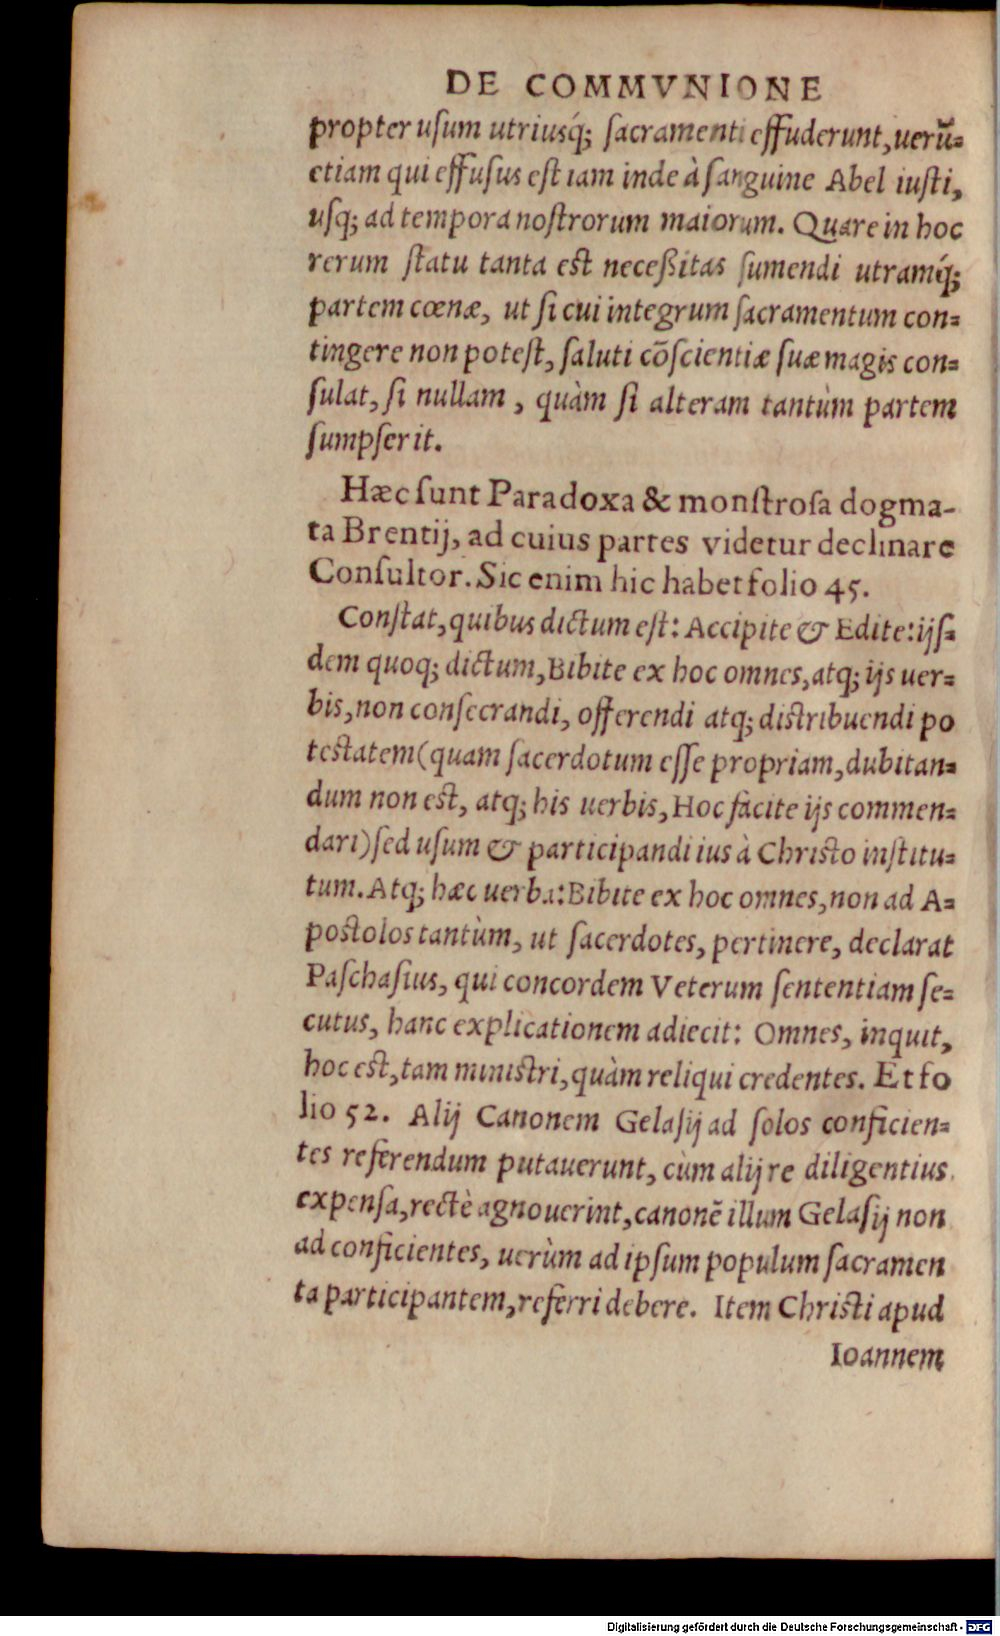 DE COMMVNIONE
propter uſum utriusq́; ſacramenti effuderunt, uerũ-
etiam qui effuſus eſt iam inde à ſanguine Abel iuſti,
uſq; ad tempora noſtrorum maiorum. Quare in hoc
rerum ſtatu tanta eſt neceßitas ſumendi utramq́;
partem cœnæ, ut ſi cui integrum ſacramentum con-
tingere non poteſt, ſaluti cõſcientiæ ſuæ magis con-
ſulat, ſi nullam, quàm ſi alteram tantùm partem
ſumpſerit.
Hæc ſunt Paradoxa & monſtroſa dogma-
ta Brentij, ad cuius partes videtur declinare
Conſultor. Sic enim hic habet folio 45.
Conſtat, quibus dictum eſt: Accipite & Edite: ijſ-
dem quoq; dictum, Bibite ex hoc omnes, atq; ijs uer-
bis, non conſecrandi, offerendi atq; distribuendi po
teſtatem (quam ſacerdotum eſſe propriam, dubitan-
dum non eſt, atq; his uerbis, Hoc facite ijs commen-
dari) ſed uſum & participandi ius à Chriſto inſtitu-
tum. Atq; hæc uerba: Bibite ex hoc omnes, non ad A-
poſtolos tantùm, ut ſacerdotes, pertinere, declarat
Paſchaſius, qui concordem Veterum ſententiam ſe-
cutus, hanc explicationem adiecit: Omnes, inquit,
hoc eſt, tam miniſtri, quàm reliqui credentes. Et fo
lio 52. Alij Canonem Gelaſij ad ſolos conficien-
tes referendum putauerunt, cùm alij re diligentius
expenſa, rectè agnouerint, canonẽ illum Gelaſij non
ad conficientes, uerùm ad ipſum populum ſacramen
ta participantem, referri debere. Item Chriſti apud
Ioannem
Digitalisierung gefördert durch die Deutsche Forschungsgemeinschaft - DFG